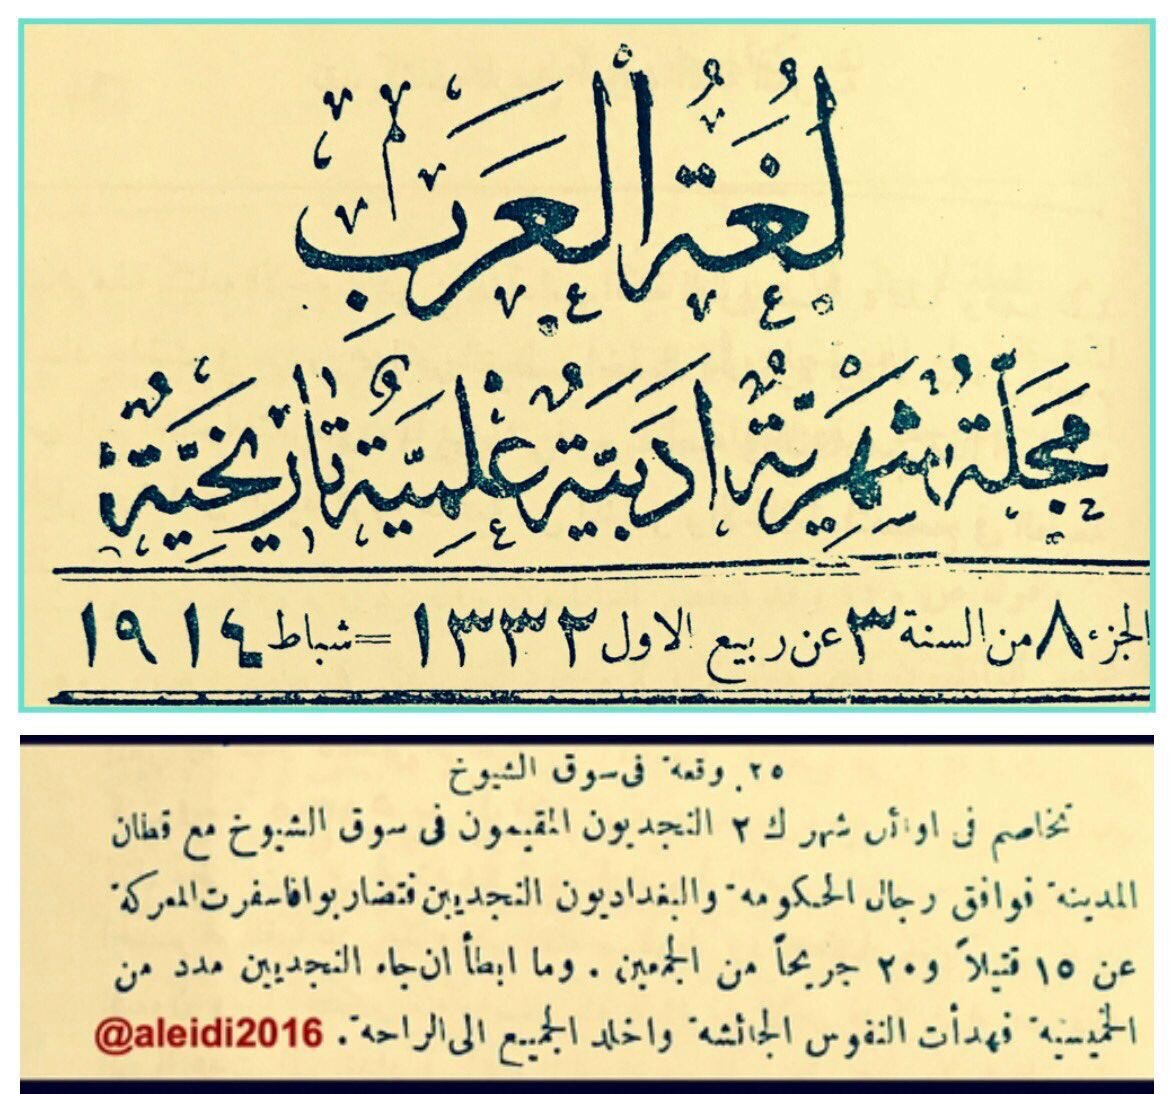 لُغَةُ الْعَرَبِ
مَجَلَّةٌ شَهْرِيَّةٌ اَدَبِيَّةٌ عِلْمِيَّةٌ تَارِيخِيَّةٌ
الجزء ٨ من السنة ٣ عن ربيع الاول ١٣٣٢ = شباط ١٩١٤
٢٥. وقعة في سوق الشيوخ
تخاصم في اوائل شهر ك ٢ النجديون المقيمون في سوق الشيوخ مع قطان
المدينة فوافق رجال الحكومة والبغداديون النجديين فتضاربوا فاسفرت المعركة
عن ١٥ قتيلاً و٢٠ جريحاً من الجمعين. وما ابطأ ان جاء النجديين مدد من
الخميسية فهدأت النفوس الجائشة واخلد الجميع الى الراحة.
@aleidi2016